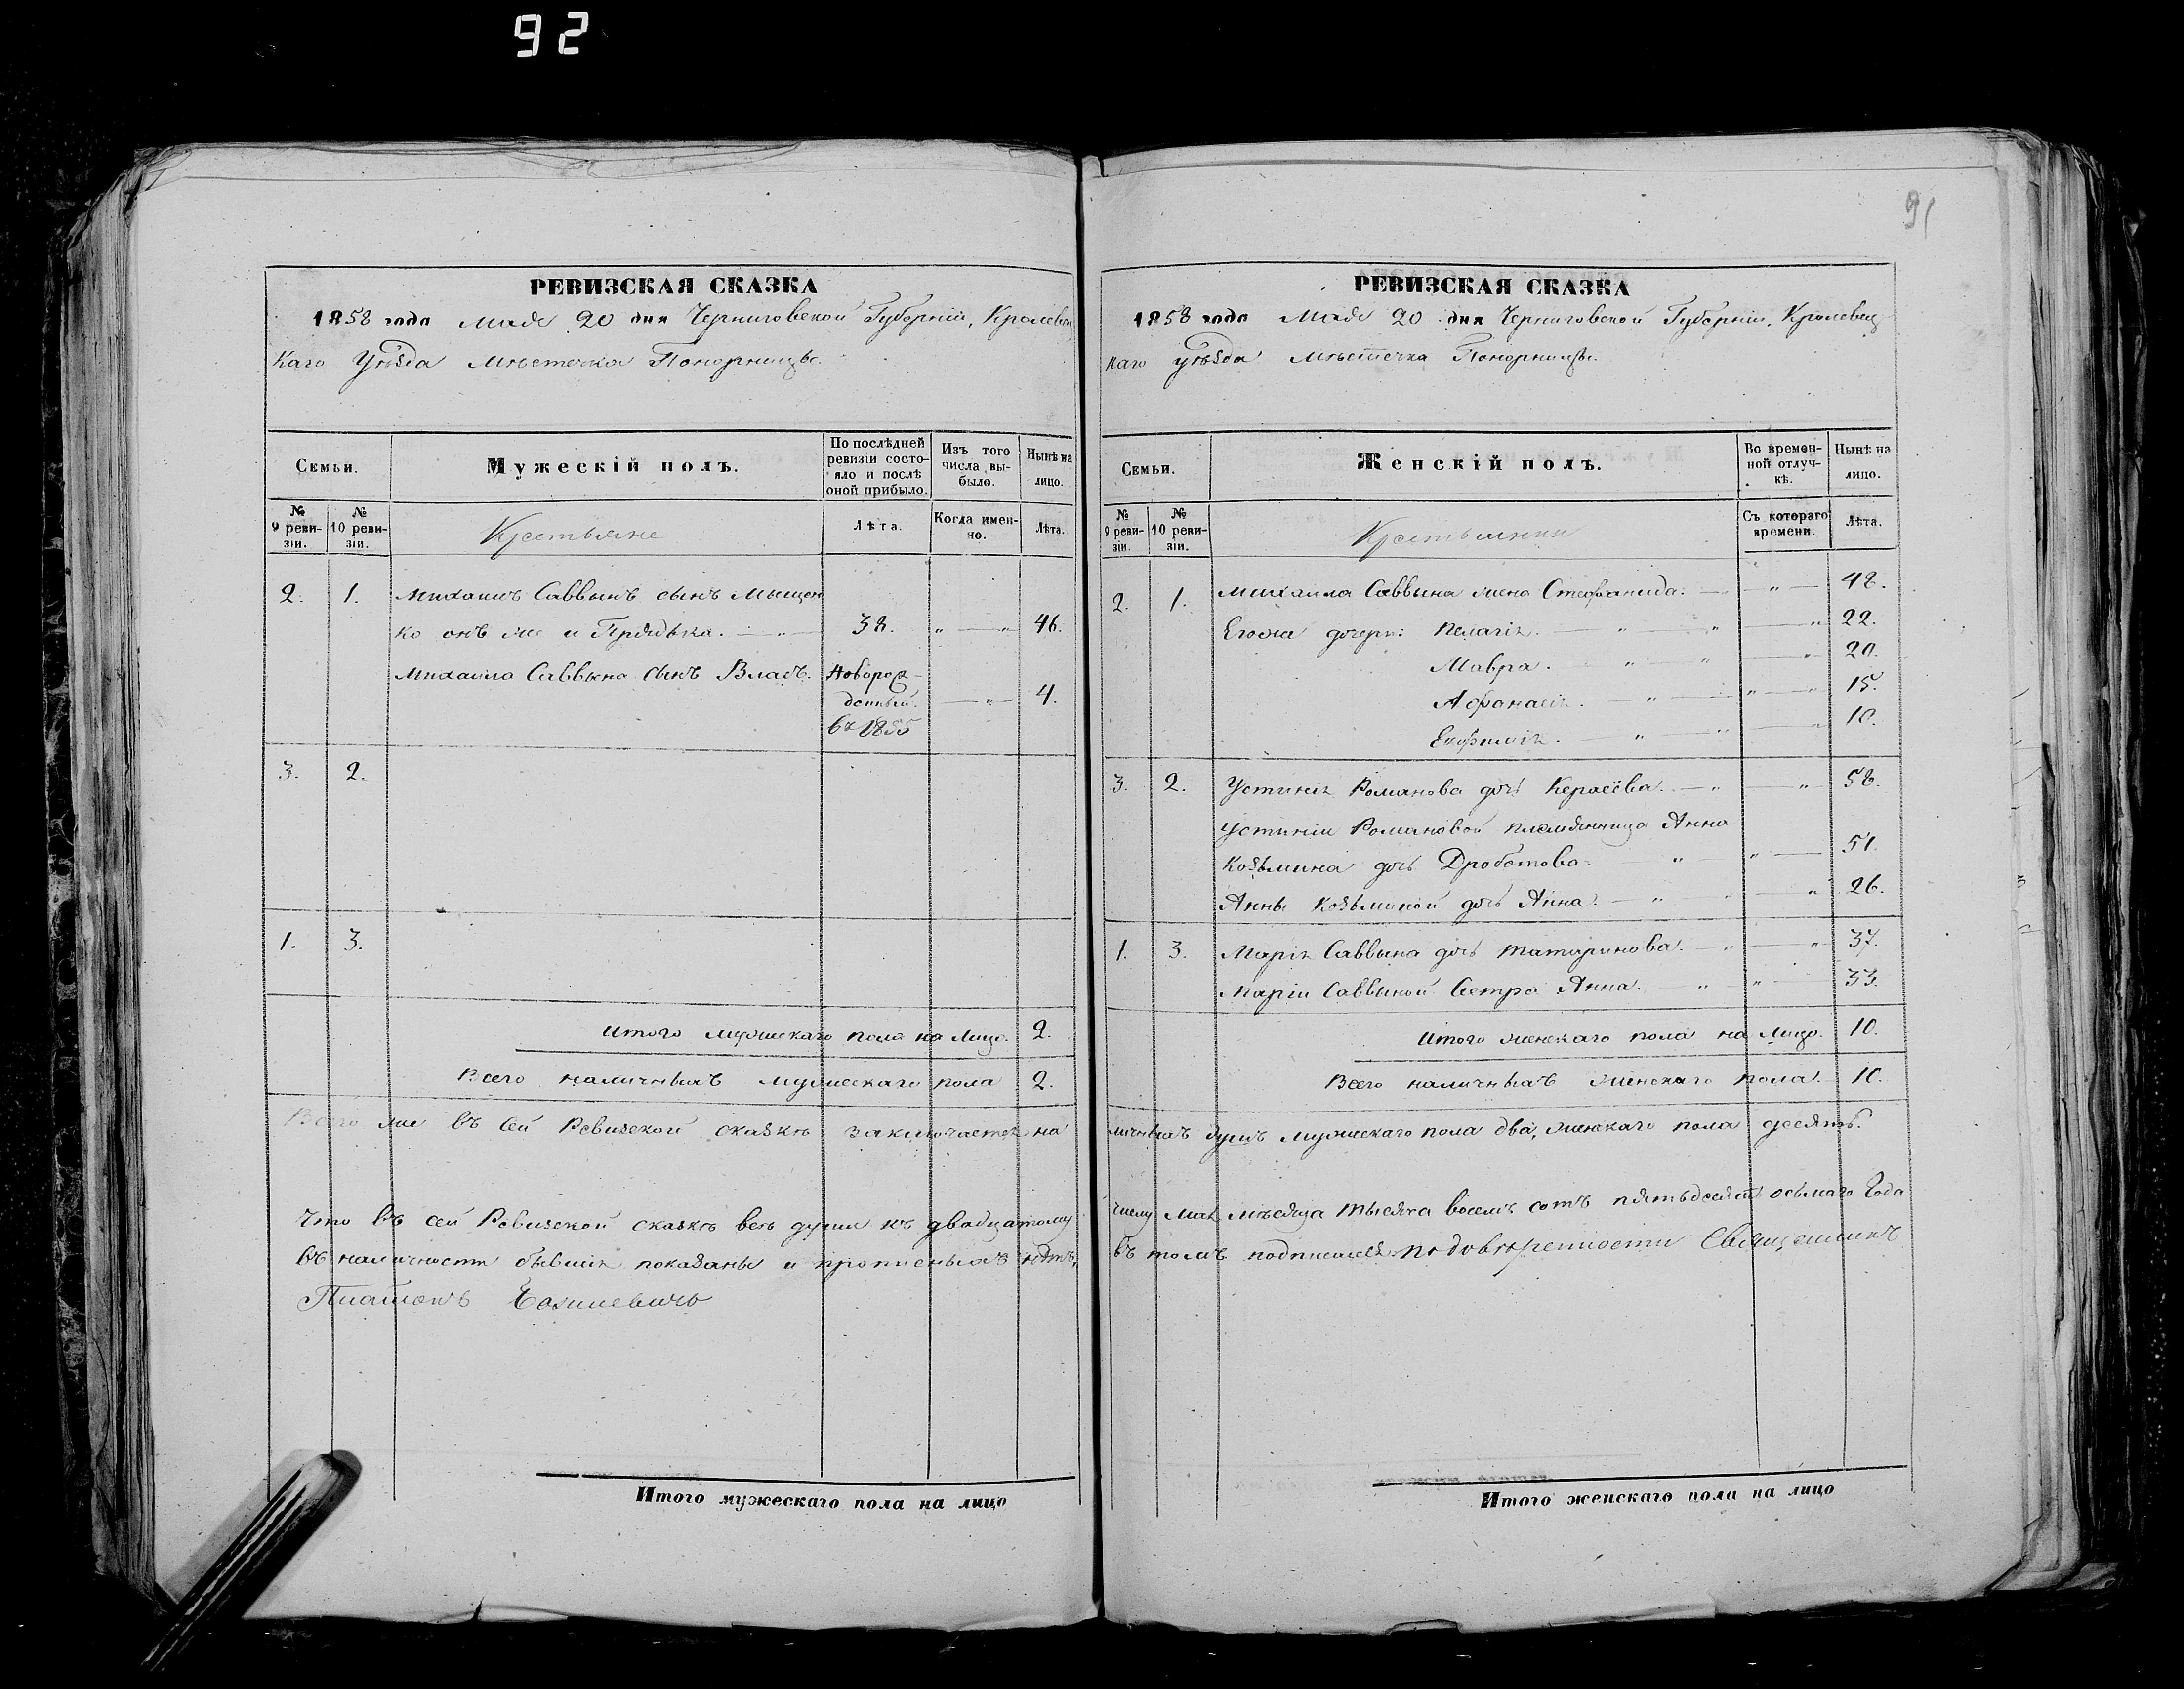 92
91
РЕВИЗСКАЯ СКАЗКА
1858 года Мая 20 дня Черниговской Губерніи, Кролевец
каго Уѣзда мѣстечка Понорницы.
Семьи.
Мужескій полъ.
По послѣдней ревизіи состояло и послѣ оной прибыло.
Изъ того числа выбыло.
Нынѣ на лицо.
№ 9 ревизіи.
№ 10 ревизіи.
Крестьяне
Лѣта.
Когда именно.
Лѣта.
2. 1. Михаилъ Саввинъ сынъ Мищен
ко онъ же и 38. „ — „ 46.
Михаила Саввина сынъ Власъ. Новорож-
денный. — „ — 4.
въ 1855
3. 2.
1. 3.
Итого мужескаго пола на лицо. 2.
Всего наличныхъ мужескаго пола 2.
Всего же въ сей Ревизской сказкѣ заключается на
Что въ сей Ревизской сказкѣ всѣ души къ двадцатому
въ наличности бывшія показаны и прописныхъ нѣтъ,
Платонъ
Итого мужескаго пола на лицо
РЕВИЗСКАЯ СКАЗКА
1858 года Мая 20 дня Черниговской Губерніи, Кролевец
каго уѣзда мѣстечка Понорницы.
Семьи.
Женскій полъ.
Во временной отлучкѣ.
Нынѣ на лицо.
№ 9 ревизіи.
№ 10 ревизіи.
Крестьянки
Съ котораго времени.
Лѣта.
2. 1. Михаила Саввина жена Стефанида. — „ — 48.
Егоже дочери: Пелагія. — „ — „ — „ 22.
Мавра. „ — „ — „ 20.
Афонасія. — „ — „ — „ 15.
Евфимія. — „ — „ — „ 10.
3. 2. Устинія Романова дочь — „ — „ 58.
Устиніи Романовой племянница Анна
Козьмина дочь Дроботова. — „ „ — 51.
Анны Козьминой дочь Анна. — „ — „ 26.
1. 3. Марія Саввина дочь Татаринова. — „ — „ 37.
Маріи Саввиной Сестра Анна. „ „ — 33.
Итого женскаго пола на Лицо. 10.
Всего наличныхъ женскаго пола. 10.
личныхъ душъ мужескаго пола два, женскаго пола десять.
числу Мая мѣсяца тысяча восемь сотъ пятьдесятъ осьмаго Года
въ томъ подписался по довѣренности Священникъ
Итого женскаго пола на лицо